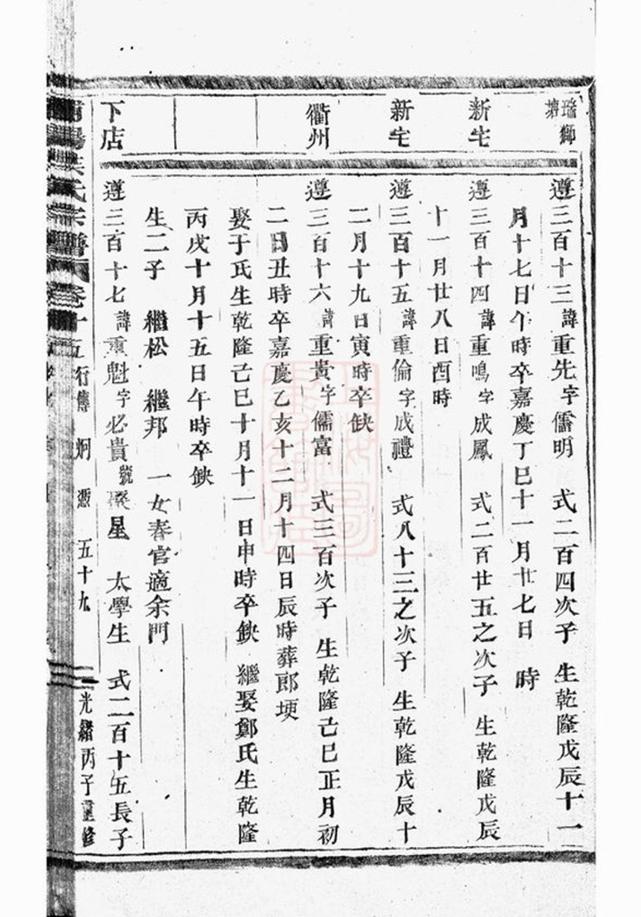 瑞獅塘
遵三百十三諱重先字儒明 式二百四次子 生乾隆戊辰十一
月十七日午時卒嘉慶丁巳十一月廿七日 時
新宅
遵三百十四諱重鳴字成鳳 式二百廿五之次子 生乾隆戊辰
十一月廿八日酉時
新宅
遵三百十五諱重倫字成禮 式八十三之次子 生乾隆戊辰十
二月十九日寅時卒缺
衢州
遵三百十六諱重貴字儒富 式三百次子 生乾隆己巳正月初
二日丑時卒嘉慶乙亥十二月十四日辰時葬郎埂
娶于氏生乾隆己巳十月十一日申時卒缺 繼娶鄭氏生乾隆
丙戌十月十五日午時卒缺
生二子 繼松 繼邦 一女春官適余門
下店
遵三百十七諱重魁字必貴號聚星 太學生 式二百十五長子
氏宗譜 卷十五 行傳 炯 五十九 光緒丙子重修